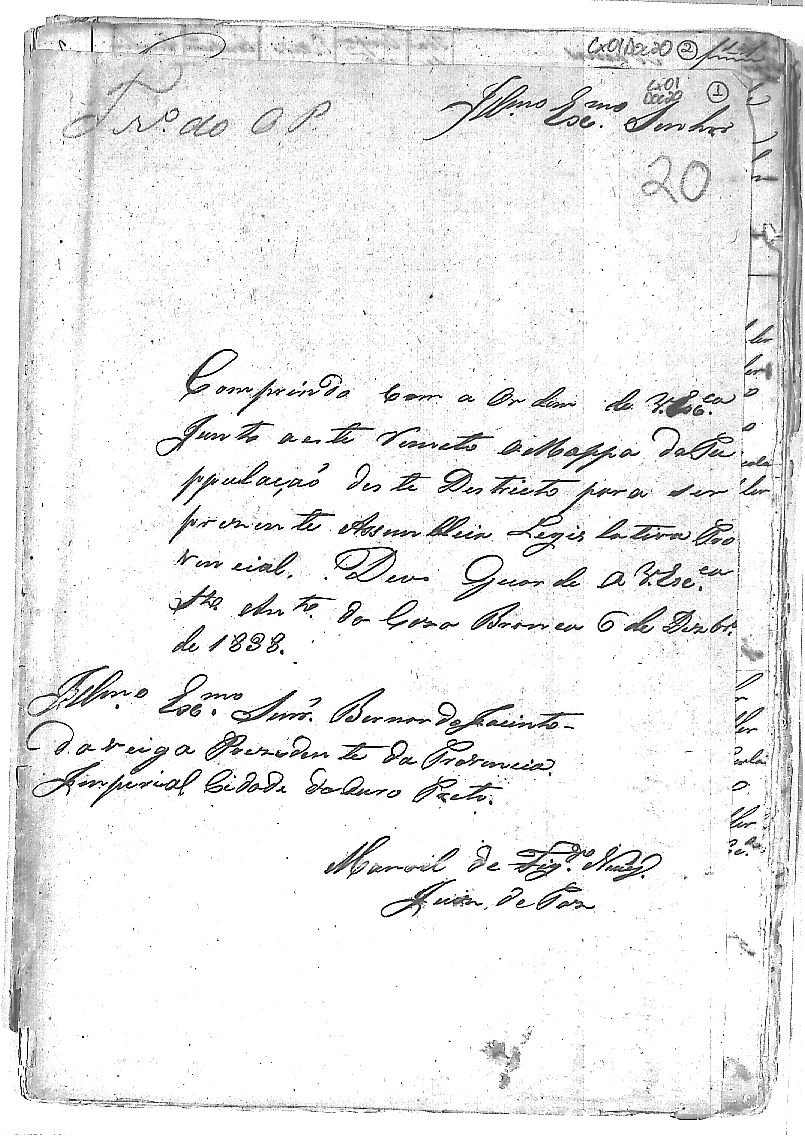 Cx01 Doc20 2
Cx01 1
Doc20
do O P.
Illmo Exmo Senhor
20
Comprindo com a Ordem de V. Exca
Junto a este remeto o Mappa da Po
ppulação deste Destricto para ser
prezente Assembleia Legislativa Pro
vencial. Deus Guarde a V. Exca
Sto Anto da Caza Branca 6 de Dezbro
de 1838.
Illmo Exmo Senr. Bernardo Jacinto
da Veiga Prezidente da Provincia
Imperial Cidade do Ouro Preto.
Manoel de Figdo
Juiz de Paz